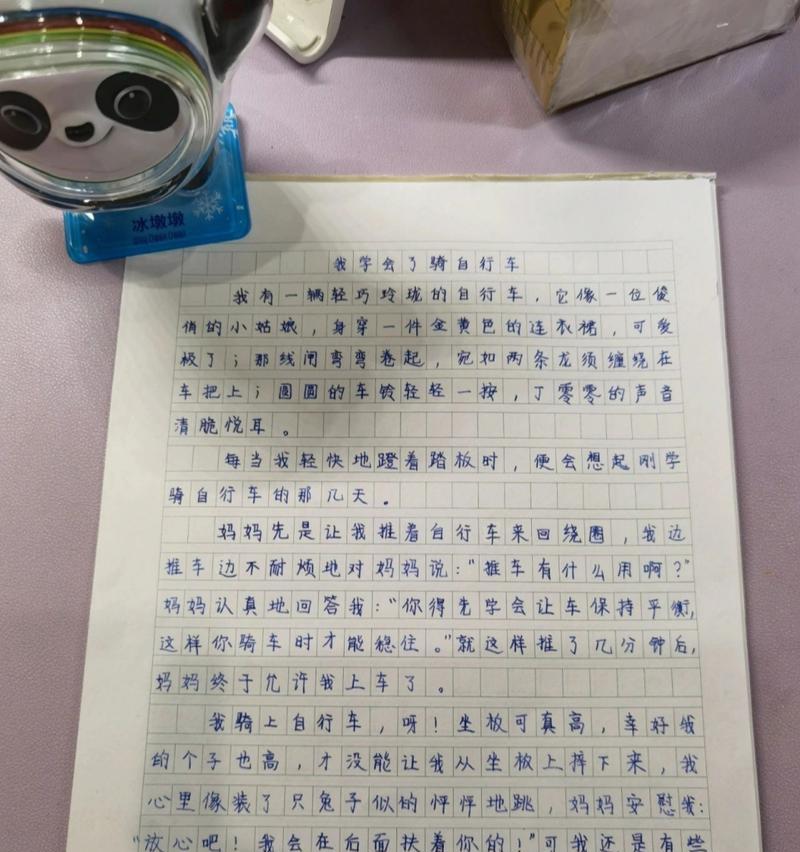 冰墩墩
我学会了骑自行车
我有一辆轻巧玲珑的自行车，它像一位俊
俏的小姑娘，身穿一件金黄色的连衣裙，可爱
极了；那线闸弯弯卷起，宛如两条龙须缠绕在
车把上；圆圆的车铃轻轻一按，丁零零的声音
清脆悦耳。
每当我轻快地蹬着踏板时，便会想起刚学
骑自行车的那几天。
妈妈先是让我推着自行车来回绕圈，我边
推车边不耐烦地对妈妈说：“推车有什么用啊？”
妈妈认真地回答我：“你得先学会让车保持平衡，
这样你骑车时才能稳住。”就这样推了几分钟后，
妈妈终于允许我上车了。
我骑上自行车，呀！坐板可真高，幸好我
的个子也高，才没能让我从坐板上摔下来，我
心里像装了只兔子似的怦怦地跳，妈妈安慰我：
“放心吧！我会在后面扶着你的！”可我还是有些